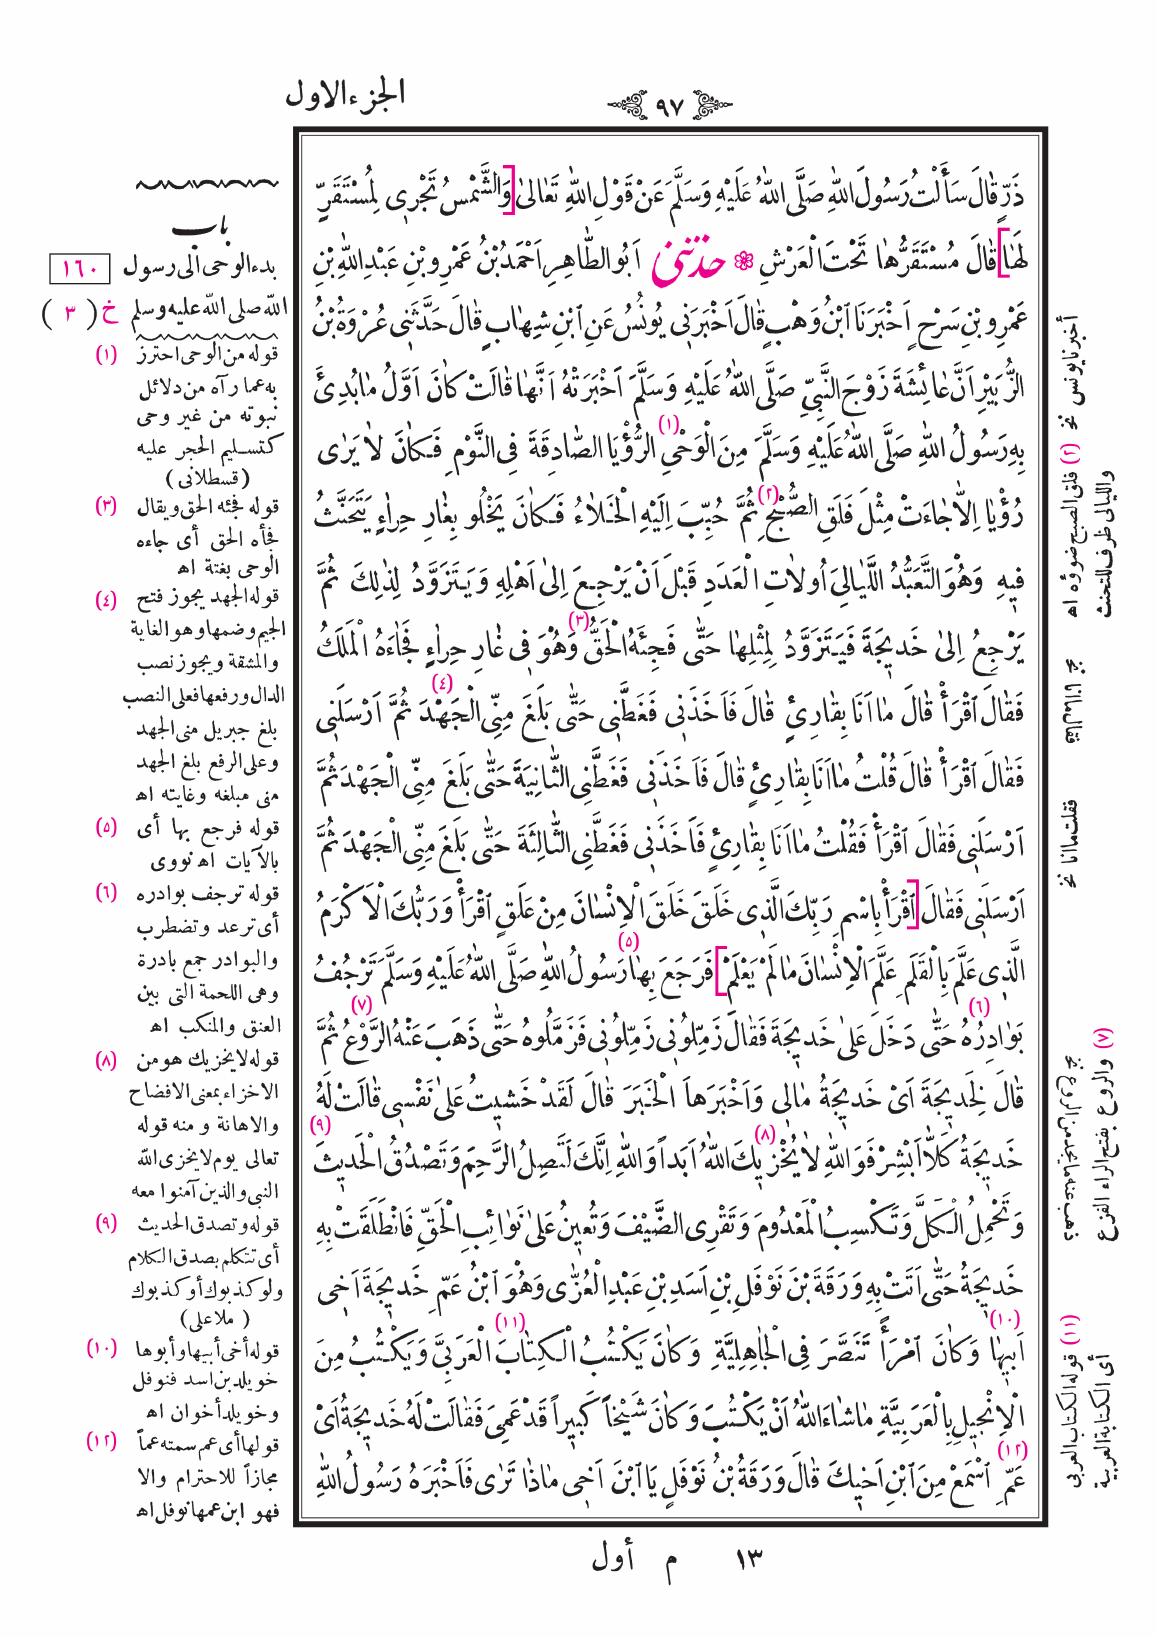 الجزء الاول
٩٧
ذَرٍّ قَالَ سَأَلْتُ رَسُولَ اللهِ صَلَّى اللهُ عَلَيْهِ وَسَلَّمَ عَنْ قَوْلِ اللهِ تَعَالَى [وَالشَّمْسُ تَجْرِى لِمُسْتَقَرٍّ
لَهَا] قَالَ مُسْتَقَرُّهَا تَحْتَ الْعَرْشِ ❁ حَدَّثَنِى اَبُو الطَّاهِرِ اَحْمَدُ بْنُ عَمْرِو بْنِ عَبْدِ اللهِ بْنِ
عَمْرِو بْنِ سَرْحٍ اَخْبَرَنَا ابْنُ وَهْبٍ قَالَ اَخْبَرَنِى يُونُسُ عَنِ ابْنِ شِهَابٍ قَالَ حَدَّثَنِى عُرْوَةُ بْنُ
الزُّبَيْرِ اَنَّ عَائِشَةَ زَوْجَ النَّبِيِّ صَلَّى اللهُ عَلَيْهِ وَسَلَّمَ اَخْبَرَتْهُ اَنَّهَا قَالَتْ كَانَ اَوَّلُ مَا بُدِئَ
بِهِ رَسُولُ اللهِ صَلَّى اللهُ عَلَيْهِ وَسَلَّمَ مِنَ الْوَحْيِ (١) الرُّؤْيَا الصَّادِقَةَ فِى النَّوْمِ فَكَانَ لَا يَرَى
رُؤْيَا اِلَّا جَاءَتْ مِثْلَ فَلَقِ الصُّبْحِ (٢) ثُمَّ حُبِّبَ اِلَيْهِ الْخَلَاءُ فَكَانَ يَخْلُو بِغَارِ حِرَاءٍ يَتَحَنَّثُ
فِيهِ وَهُوَ التَّعَبُّدُ اللَّيَالِىَ اُولَاتِ الْعَدَدِ قَبْلَ اَنْ يَرْجِعَ اِلَى اَهْلِهِ وَيَتَزَوَّدُ لِذٰلِكَ ثُمَّ
يَرْجِعُ اِلَى خَدِيجَةَ فَيَتَزَوَّدُ لِمِثْلِهَا حَتَّى فَجِئَهُ الْحَقُّ (٣) وَهُوَ فِى غَارِ حِرَاءٍ فَجَاءَهُ الْمَلَكُ
فَقَالَ اقْرَأْ قَالَ مَا اَنَا بِقَارِئٍ قَالَ فَاَخَذَنِى فَغَطَّنِى حَتَّى بَلَغَ مِنِّى الْجَهْدَ (٤) ثُمَّ اَرْسَلَنِى
فَقَالَ اقْرَأْ قَالَ قُلْتُ مَا اَنَا بِقَارِئٍ قَالَ فَاَخَذَنِى فَغَطَّنِى الثَّانِيَةَ حَتَّى بَلَغَ مِنِّى الْجَهْدَ ثُمَّ
اَرْسَلَنِى فَقَالَ اقْرَأْ فَقُلْتُ مَا اَنَا بِقَارِئٍ فَاَخَذَنِى فَغَطَّنِى الثَّالِثَةَ حَتَّى بَلَغَ مِنِّى الْجَهْدَ ثُمَّ
اَرْسَلَنِى فَقَالَ [اقْرَأْ بِاسْمِ رَبِّكَ الَّذِى خَلَقَ خَلَقَ الْاِنْسَانَ مِنْ عَلَقٍ اقْرَأْ وَرَبُّكَ الْاَكْرَمُ
الَّذِى عَلَّمَ بِالْقَلَمِ عَلَّمَ الْاِنْسَانَ مَا لَمْ يَعْلَمْ] فَرَجَعَ بِهَا (٥) رَسُولُ اللهِ صَلَّى اللهُ عَلَيْهِ وَسَلَّمَ تَرْجُفُ
بَوَادِرُهُ (٦) حَتَّى دَخَلَ عَلَى خَدِيجَةَ فَقَالَ زَمِّلُونِى زَمِّلُونِى فَزَمَّلُوهُ حَتَّى ذَهَبَ عَنْهُ الرَّوْعُ (٧) ثُمَّ
قَالَ لِخَدِيجَةَ اَىْ خَدِيجَةُ مَالِى وَاَخْبَرَهَا الْخَبَرَ قَالَ لَقَدْ خَشِيتُ عَلَى نَفْسِى قَالَتْ لَهُ
خَدِيجَةُ كَلَّا اَبْشِرْ فَوَاللهِ لَا يُخْزِيكَ (٨) اللهُ اَبَداً وَاللهِ اِنَّكَ لَتَصِلُ الرَّحِمَ وَتَصْدُقُ الْحَدِيثَ (٩)
وَتَحْمِلُ الْكَلَّ وَتَكْسِبُ الْمَعْدُومَ وَتَقْرِى الضَّيْفَ وَتُعِينُ عَلَى نَوَائِبِ الْحَقِّ فَانْطَلَقَتْ بِهِ
خَدِيجَةُ حَتَّى اَتَتْ بِهِ وَرَقَةَ بْنَ نَوْفَلِ بْنِ اَسَدِ بْنِ عَبْدِ الْعُزَّى وَهُوَ ابْنُ عَمِّ خَدِيجَةَ اَخِى
اَبِيهَا (١٠) وَكَانَ امْرَأً تَنَصَّرَ فِى الْجَاهِلِيَّةِ وَكَانَ يَكْتُبُ الْكِتَابَ (١١) الْعَرَبِيَّ وَيَكْتُبُ مِنَ
الْاِنْجِيلِ بِالْعَرَبِيَّةِ مَا شَاءَ اللهُ اَنْ يَكْتُبَ وَكَانَ شَيْخاً كَبِيراً قَدْ عَمِىَ فَقَالَتْ لَهُ خَدِيجَةُ اَىْ
عَمِّ (١٢) اسْمَعْ مِنَ ابْنِ اَخِيكَ قَالَ وَرَقَةُ بْنُ نَوْفَلٍ يَا ابْنَ اَخِى مَاذَا تَرَى فَاَخْبَرَهُ رَسُولُ اللهِ
باب
بدء الوحى الى رسول
١٦٠
الله صلى الله عليه وسلم
خ (٣)
(١) قوله من الوحى احترز
به عما رآه من دلائل
نبوته من غير وحى
كتسليم الحجر عليه
(قسطلانى)
(٣) قوله فجئه الحق ويقال
فجأه الحق أى جاءه
الوحى بغتة اه
(٤) قوله الجهد يجوز فتح
الجيم وضمها وهو الغاية
والمشقة ويجوز نصب
الدال ورفعها فعلى النصب
بلغ جبريل منى الجهد
وعلى الرفع بلغ الجهد
منى مبلغه وغايته اه
(٥) قوله فرجع بها أى
بالآيات اه نووى
(٦) قوله ترجف بوادره
أى ترعد وتضطرب
والبوادر جمع بادرة
وهى اللحمة التى بين
العنق والمنكب اه
(٨) قوله لا يخزيك هو من
الاخزاء بمعنى الافضاح
والاهانة و منه قوله
تعالى يوم لا يخزى الله
النبى والذين آمنوا معه
(٩) قوله وتصدق الحديث
أى تتكلم بصدق الكلام
ولو كذبوك أو كذبوك
( ملا على )
(١٠) قوله أخى أبيها وأبوها
خويلد بن اسد فنوفل
وخويلد أخوان اه
(١٢) قولها أى عم سمته عماً
مجازاً للاحترام والا
فهو ابن عمها نوفل اه
أخبرنا يونس نخ
(٢) فلق الصبح ضوؤه اه
والليالى ظرف للتحنث
فقال ما انا نخ
فقلت ما انا نخ
(٧) والروع بفتح الراء الفزع
ذهب عنه ما يجد من الروع نخ
(١١) قوله الكتاب العربى
أى الكتابة العربية
١٣ م أول